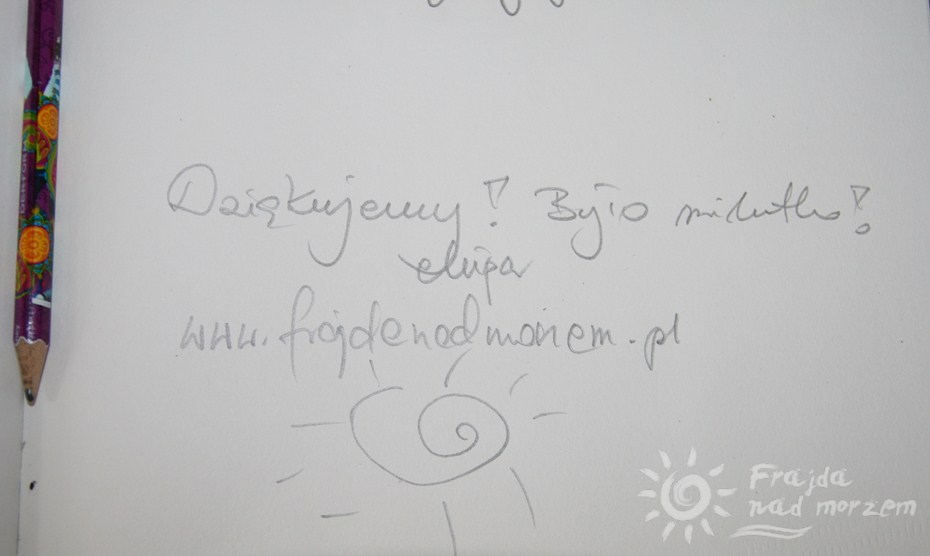 Dziękujemy! Było milutko!
ekipa
www.frajdanadmorzem.pl
Frajda
nad morzem